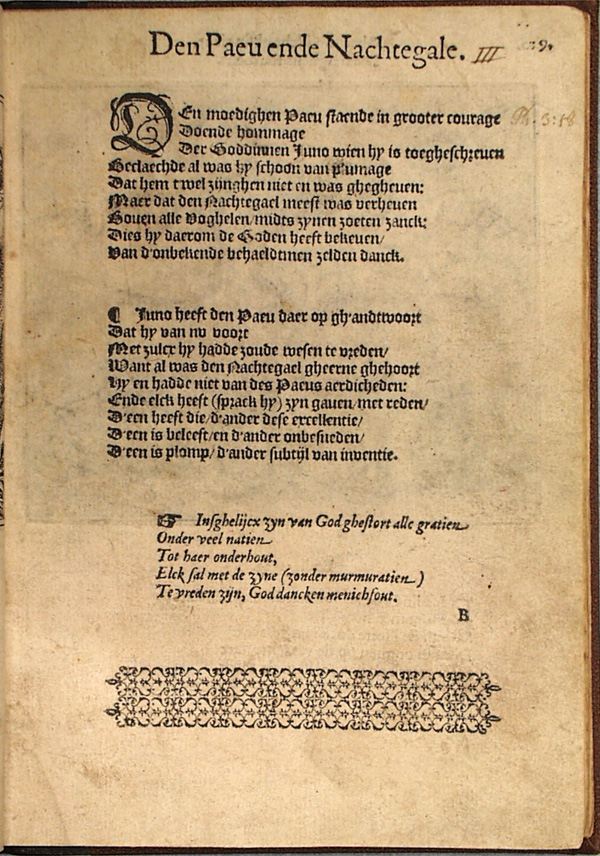 Den Paeu ende Nachtegale. III 9.
DEn moedighen Paeu staende in grooter courage Ph. 3:18
Doende hommage
Der Goddinnen Juno wien hy is toegheschreuen
Beclaechde al was hy schoon van plumage
Dat hem t'wel zijnghen niet en was ghegheuen:
Maer dat den Nachtegael meest was verheuen
Bouen alle Voghelen/midts zynen zoeten zanck:
Dies hy daerom de Goden heeft bekeuen/
Van d'onbekende behaeldtmen zelden danck.
¶ Juno heeft den Paeu daer op gh'andtwoort
Dat hy van nv voort
Met zulcx hy hadde zoude wesen te vreden/
Want al was den Nachtegael gheerne ghehoort
Hy en hadde niet van des Paeus aerdicheden:
Ende elck heeft (sprack hy) zyn gauen/met reden/
D'een heeft die/d'ander dese excellentie/
D'een is beleeft/en d'ander onbesneden/
D'een is plomp/d'ander subtijl van inventie.
☞ Insghelijcx zyn van God ghestort alle gratien
Onder veel natien
Tot haer onderhout,
Elck sal met de zyne (zonder murmuratien)
Te vreden zijn, God dancken menichfout.
B